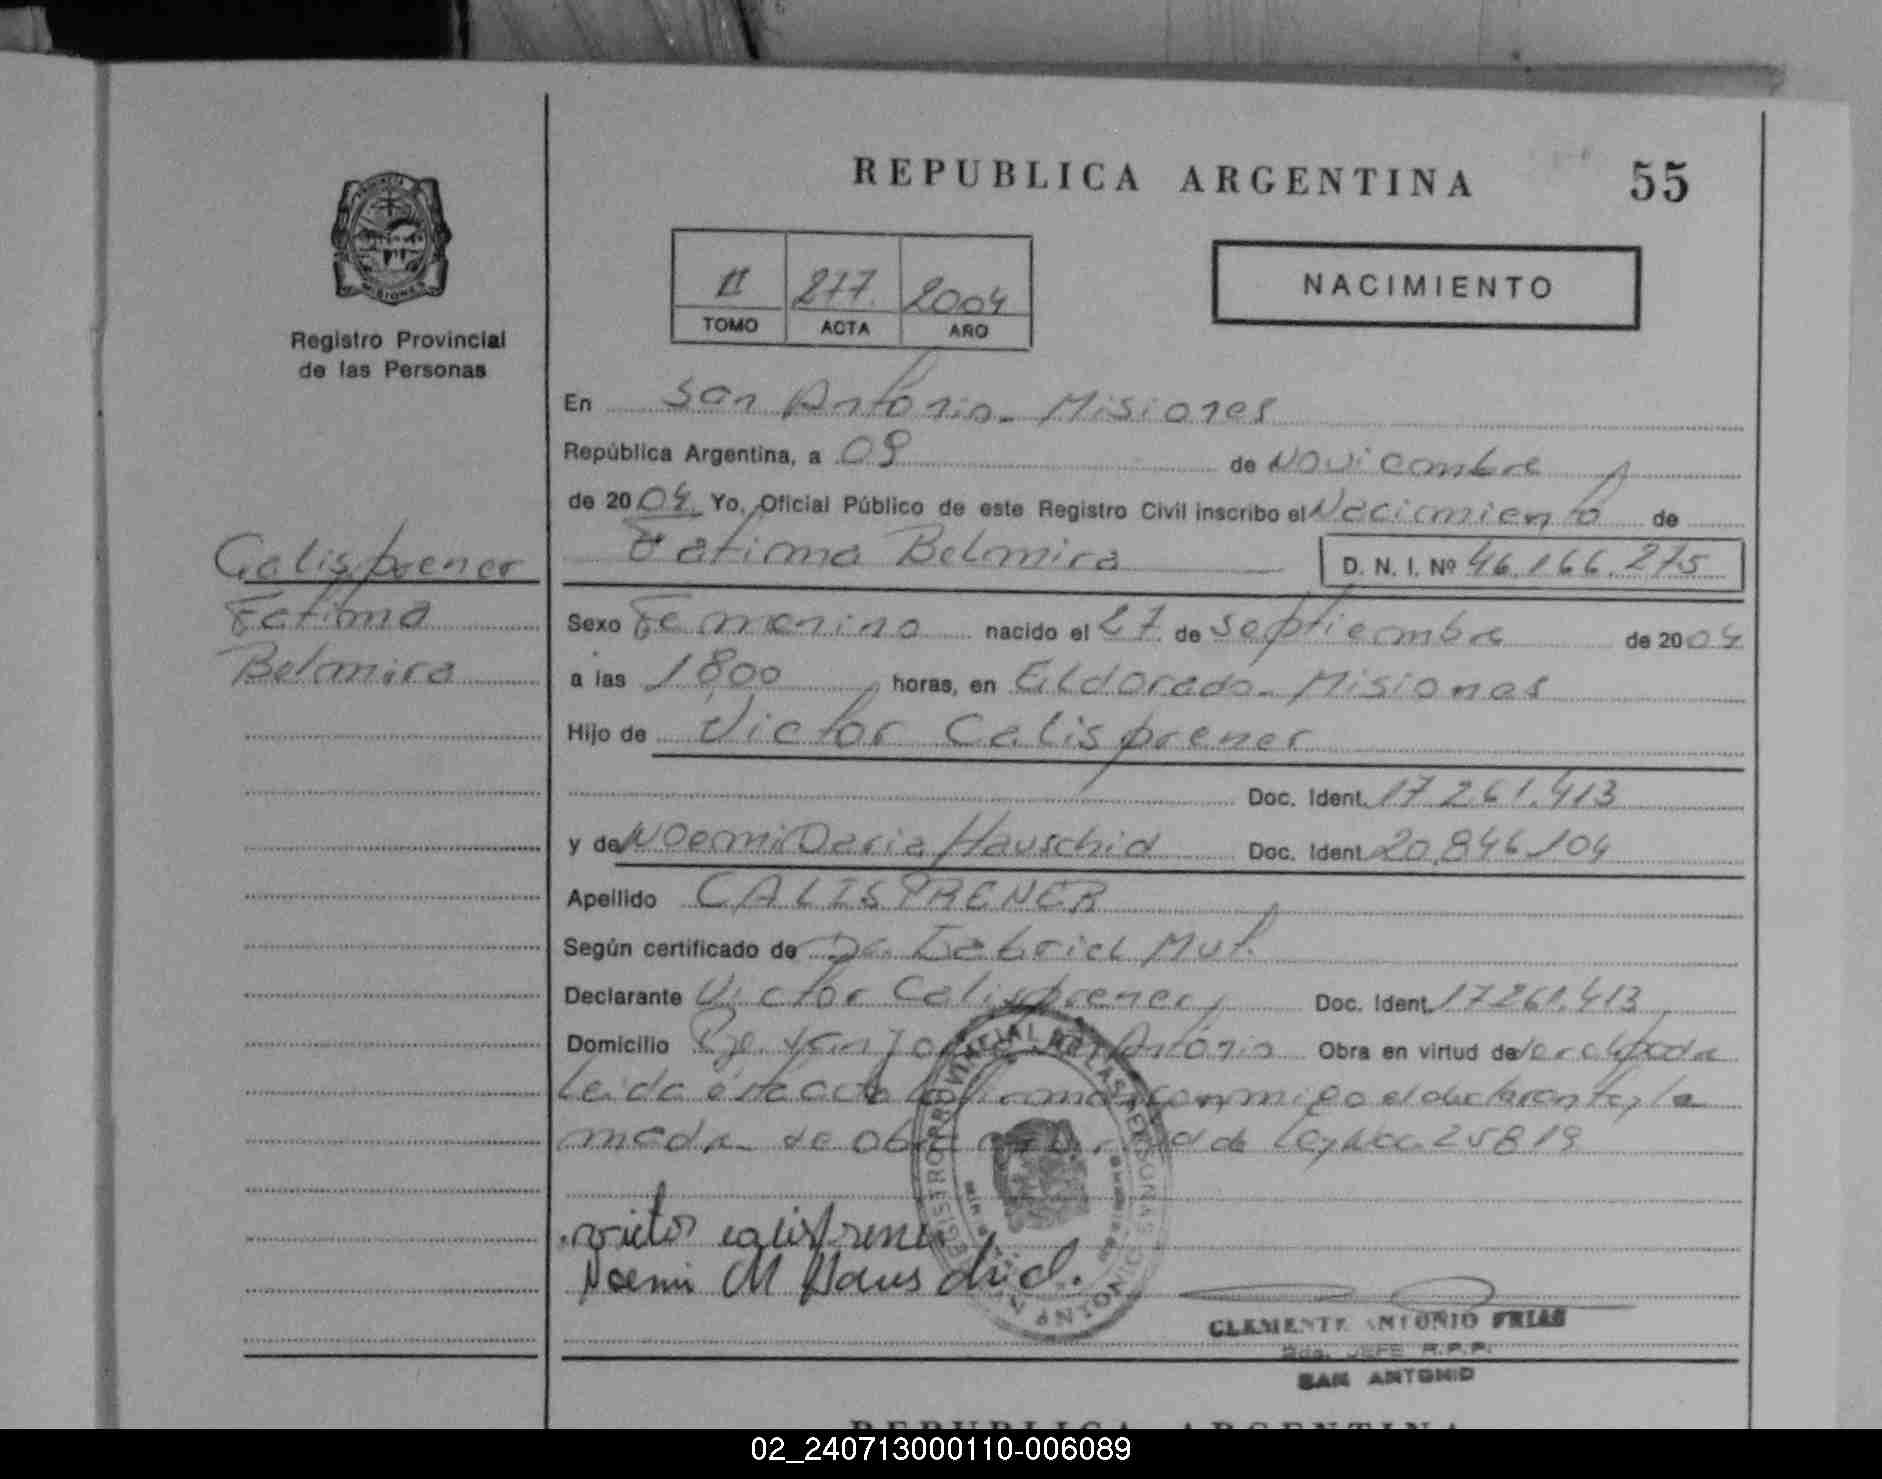 REPUBLICA ARGENTINA 55
PROVINCIA MISIONES
Registro Provincial
de las Personas
II 277. 2004
TOMO ACTA AÑO
NACIMIENTO
En San Antonio - Misiones
República Argentina, a 09 de Noviembre
de 2004. Yo, Oficial Público de este Registro Civil inscribo el Nacimiento de
Fatima Belmira D. N. I. Nº 46.166.275
Calisprener
Fatima
Belmira
Sexo Femenino nacido el 27 de septiembre de 2004
a las 18,00 horas, en Eldorado - Misiones
Hijo de Victor Calisprener
Doc. Ident. 17.261.413
y de Noemi Daria Hauschid Doc. Ident. 20.846.104
Apellido CALISPRENER
Según certificado de Dr. Gabriel
Declarante Victor Calisprener, Doc. Ident. 17261.413
Domicilio San Antonio Obra en virtud de
Leida esta acta conmigo el declarante, la
madre 25819
victor calisprener
Noemi M Hauschid.
REGISTRO PROVINCIAL DE LAS PERSONAS
SAN ANTONIO
CLEMENTE ANTONIO FRIAS
2do. JEFE R.P.P.
SAN ANTONIO
REPUBLICA ARGENTINA
02_240713000110-006089